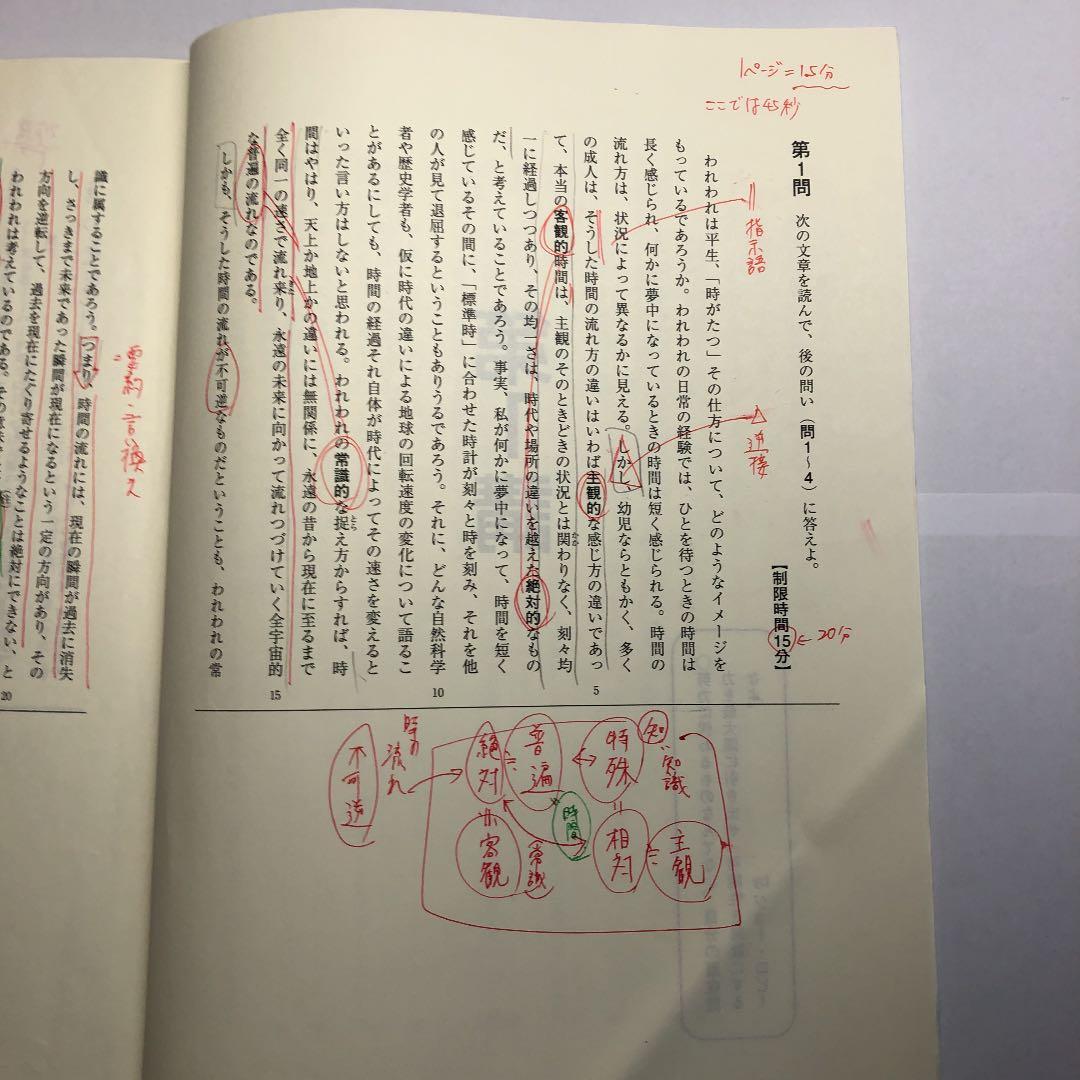 1ページ=1.5分
ここでは45秒
第1問　次の文章を読んで、後の問い（問1～4）に答えよ。
【制限時間15分】
←20分
われわれは平生、「時がたつ」その仕方について、どのようなイメージを
もっているであろうか。われわれの日常の経験では、ひとを待つときの時間は
長く感じられ、何かに夢中になっているときの時間は短く感じられる。時間の
流れ方は、状況によって異なるかに見える。しかし、幼児ならともかく、多く
の成人は、そうした時間の流れ方の違いはいわば主観的な感じ方の違いであっ
て、本当の客観的時間は、主観のそのときどきの状況とは関わりなく、刻々均
かか
一に経過しつつあり、その均一さは、時代や場所の違いを越えた絶対的なもの
だ、と考えていることであろう。事実、私が何かに夢中になって、時間を短く
感じているその間に、「標準時」に合わせた時計が刻々と時を刻み、それを他
の人が見て退屈するということもありうるであろう。それに、どんな自然科学
者や歴史学者も、仮に時代の違いによる地球の回転速度の変化について語るこ
とがあるにしても、時間の経過それ自体が時代によってその速さを変えると
いった言い方はしないと思われる。われわれの常識的な捉え方からすれば、時
とら
間はやはり、天上か地上かの違いには無関係に、永遠の昔から現在に至るまで
全く同一の速さで流れ来り、永遠の未来に向かって流れつづけていく全宇宙的
な普遍の流れなのである。
しかも、そうした時間の流れが不可逆なものだということも、われわれの常
5
10
15
指示語
逆接
知
知識
特殊
普遍
絶対
時の流れ
不可逆
時間
相対
主観
客観
常識
識に属することであろう。つまり、時間の流れには、現在の瞬間が過去に消失
し、さっきまで未来であった瞬間が現在になるという一定の方向があり、その
方向を逆転して、過去を現在にたぐり寄せるようなことは絶対にできない、と
われわれは考えているのである。
20
要約・言い換え